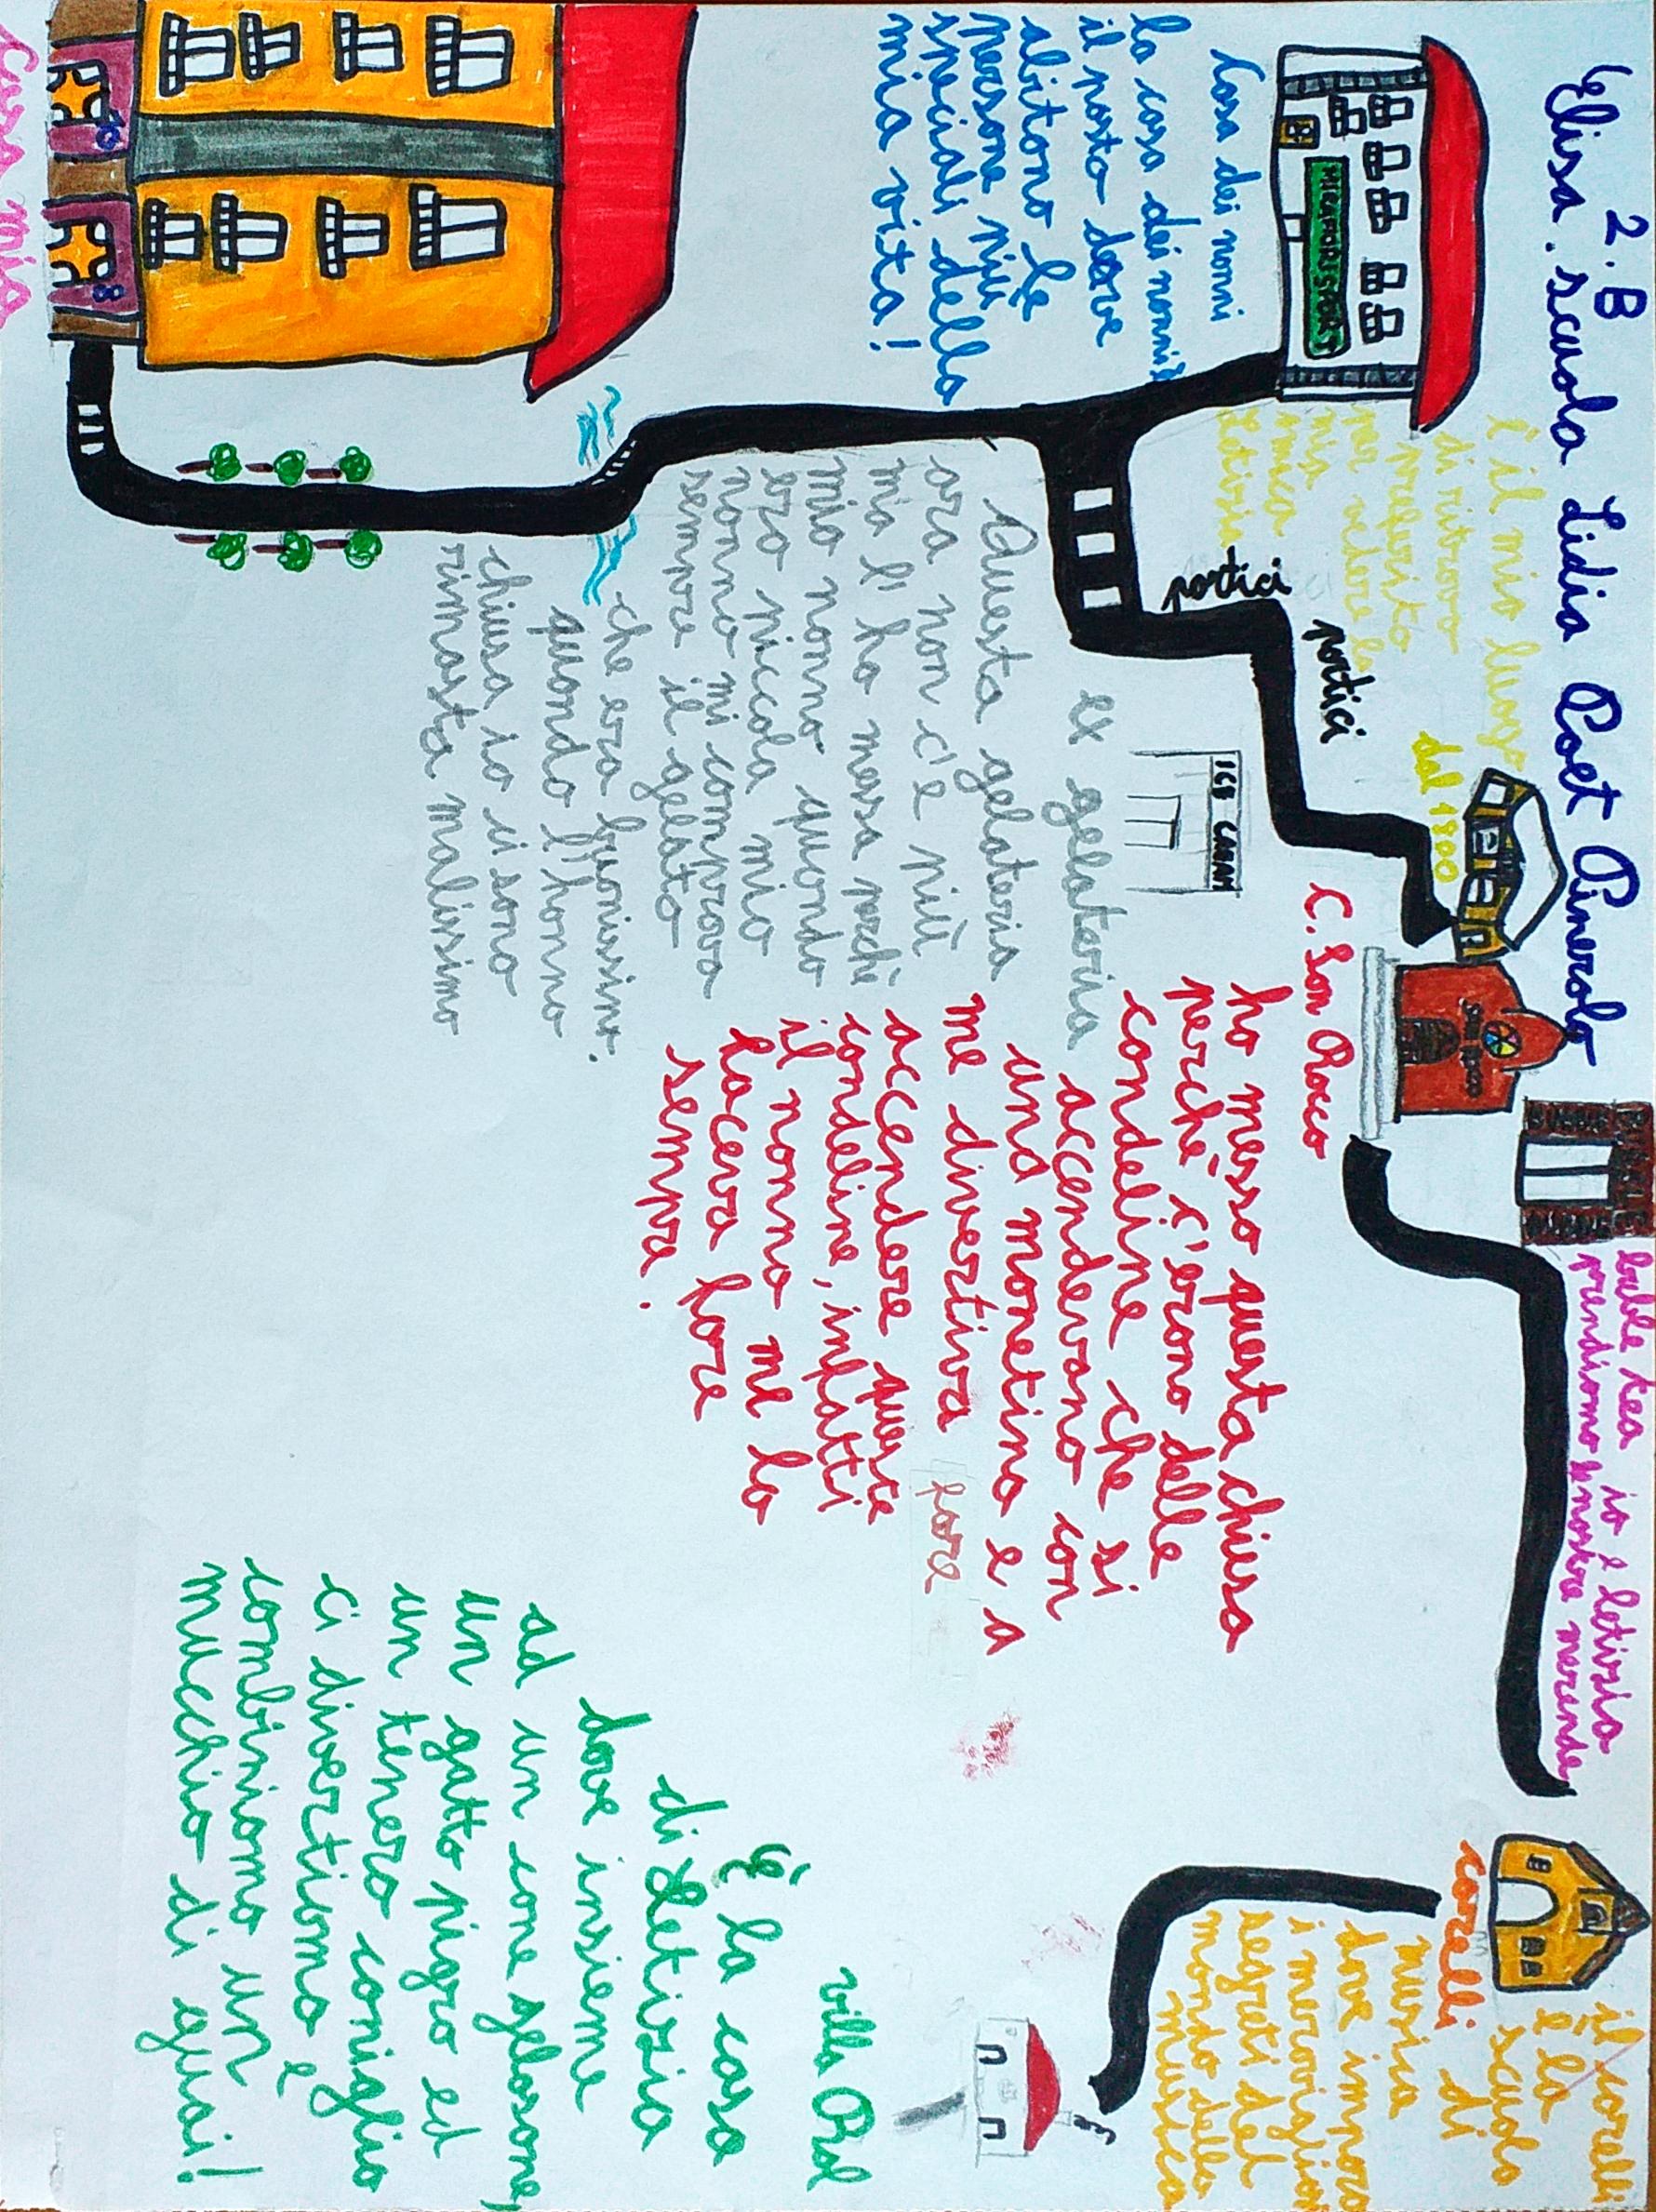 2.B
Elisa. scuola Lidia Poet Pinerolo
Casa dei nonni
la casa dei nonni è
il posto dove
abitano le
persone più
speciali della
mia vita!
MIRAFIORESTORE
È il mio luogo
di ritrovo
preferito
per vedere la
mia
amica
Letizia
dal 1800
portici
portici
ICE CREAM
ex gelateria
Questa gelateria
ora non c'è più
ma l'ho messa perchè
mio nonno quando
ero piccola mio
nonno mi comprava
sempre il gelato
che era buonissimo.
quando l'hanno
chiusa io ci sono
rimasta malissimo
C. San Rocco
SAN ROCCO
ho messo questa chiesa
perchè c'erano delle
candeline che si
accendevano con
una monetina e a
me divertiva fare
accendere queste
candeline, infatti
il nonno me lo
faceva fare
sempre.
buble tea io e letizia
prendiamo le nostre merende
corelli
il corelli
è la
scuola
di
musica
dove imparo
i meravigliosi
segreti del
mondo della
musica
villa Rol
È la casa
di Letizia
dove insieme
ad un cane gelosone,
un gatto pigro ed
un tenero coniglio
ci divertiamo e
combiniamo un
mucchio di guai!
10
8
Casa mia